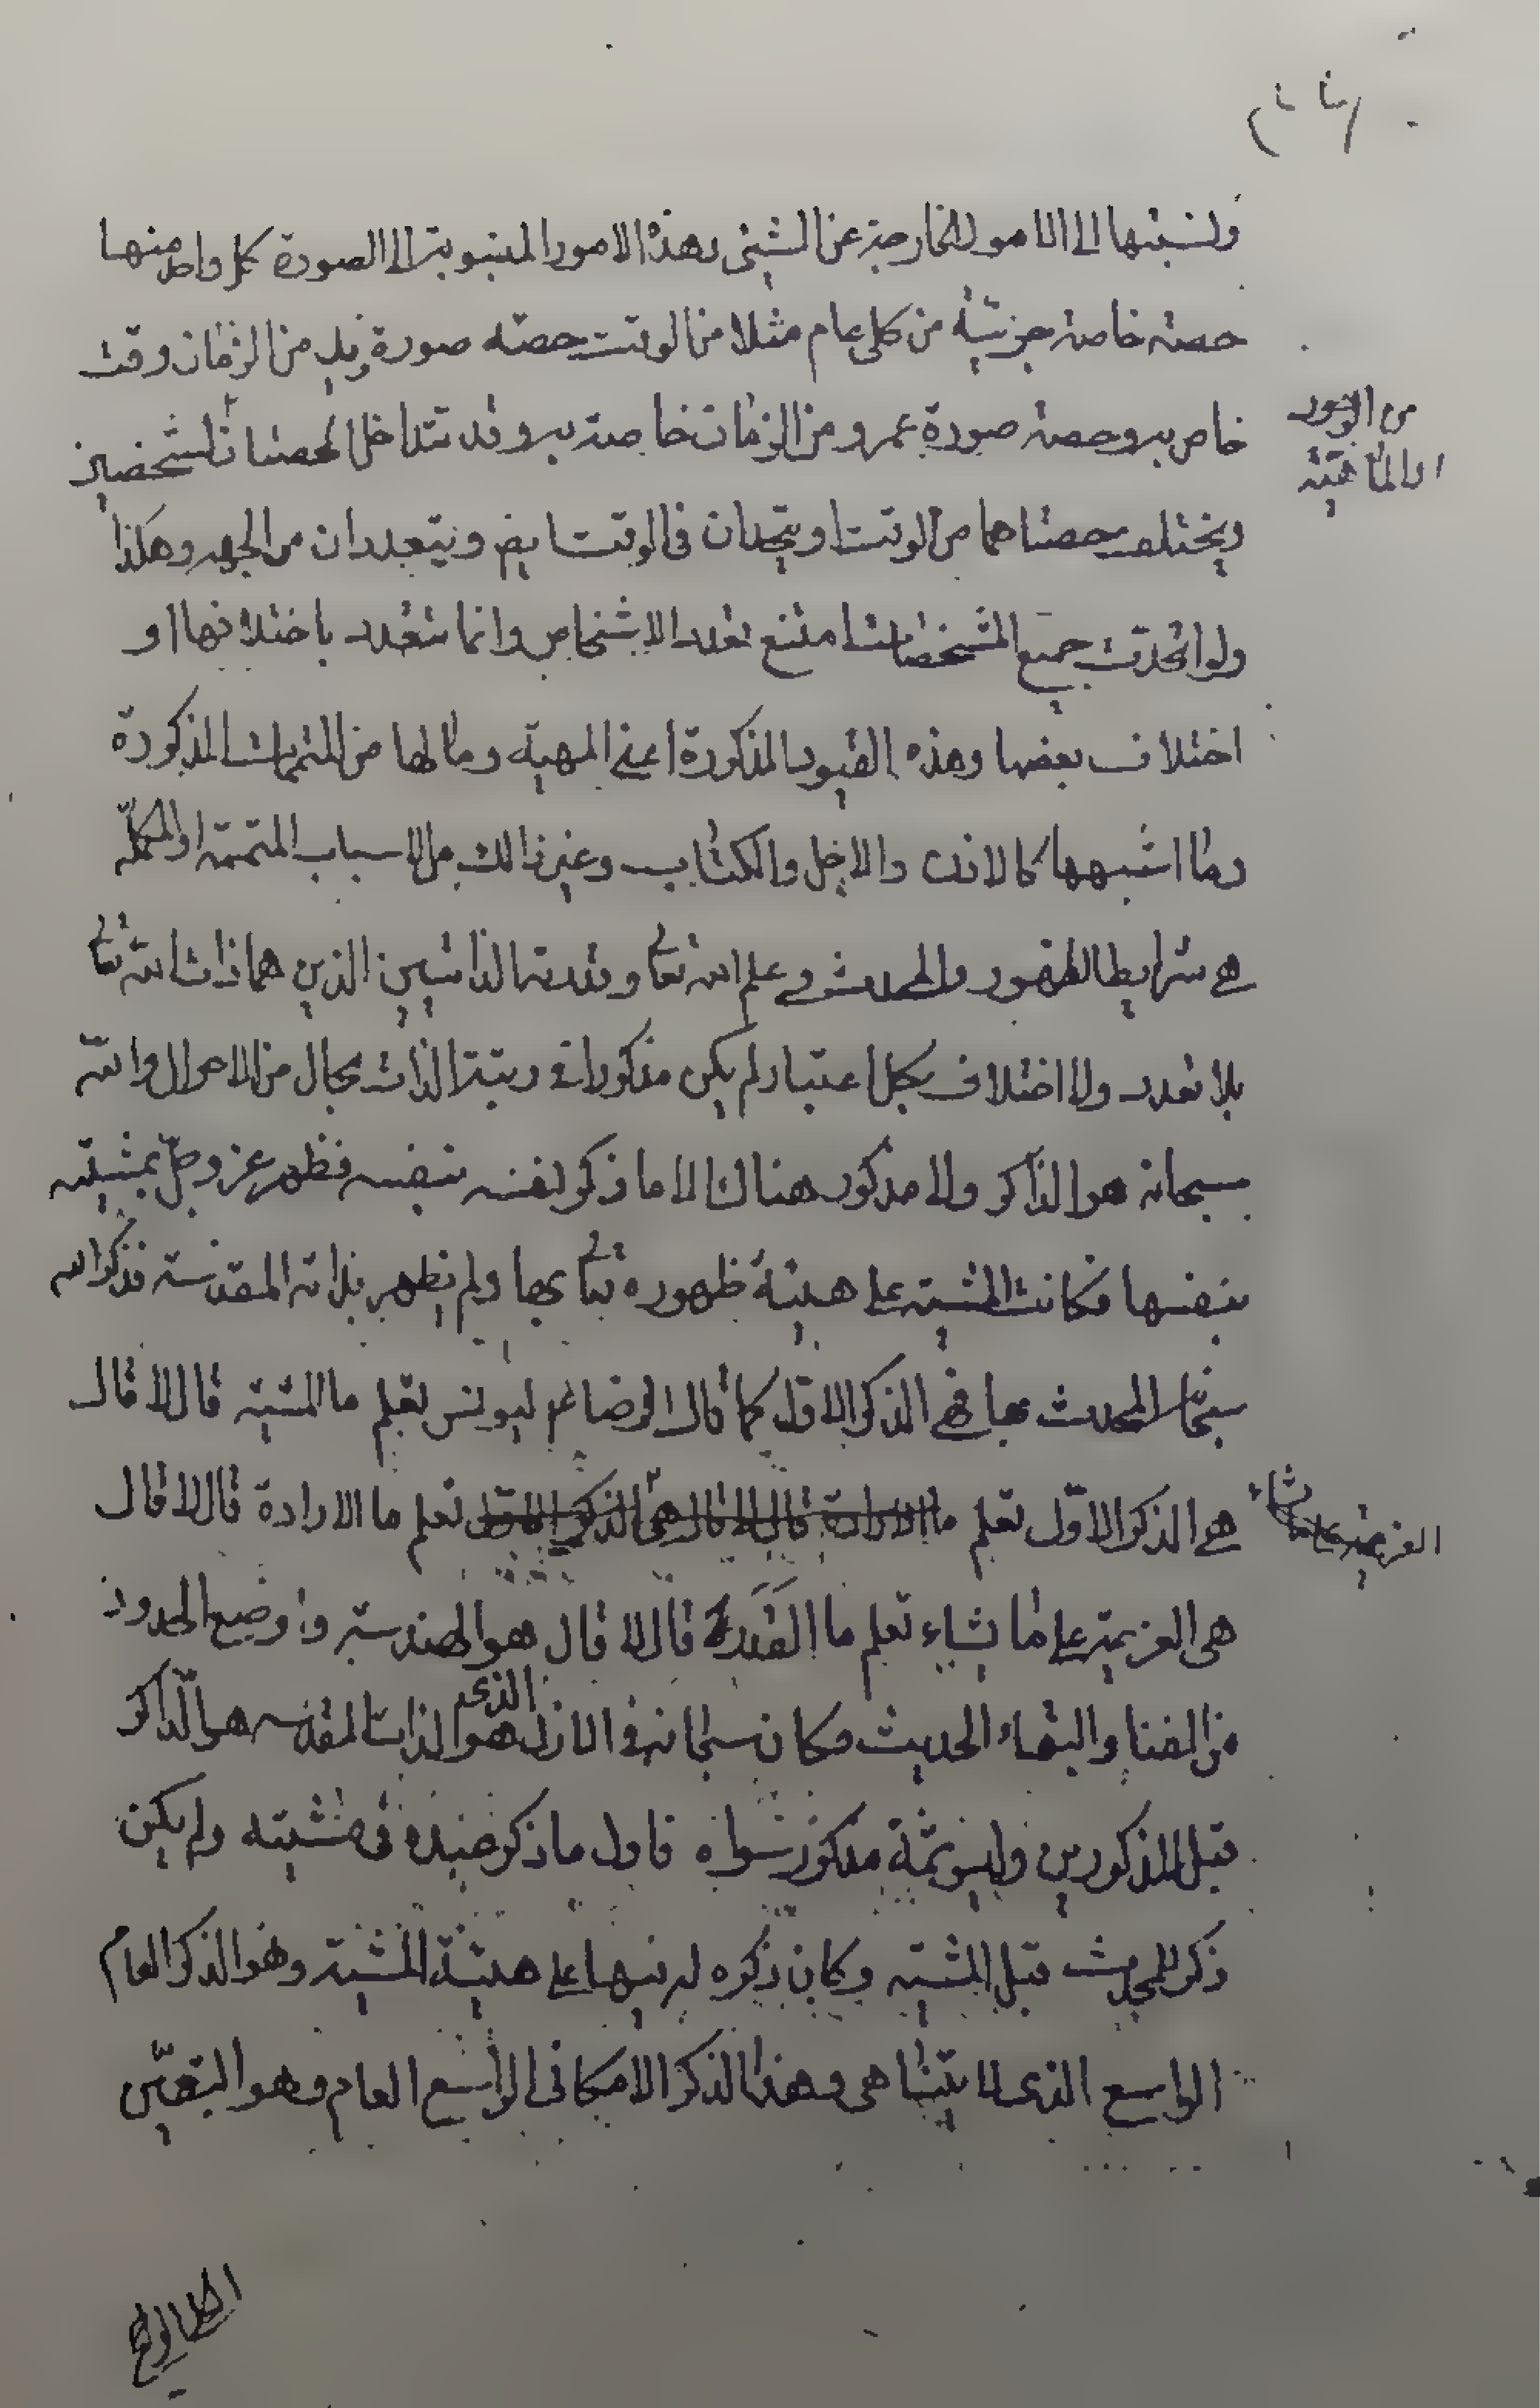 ونسبتها الى الامور الخارجة عن الشيئ وهذه الامور المنسوبة الى الصورة كل واحد منها
حصة خاصة جزئية من كلى عام مثلا من الوقت حصته صورة زيد من الزمان وقت
خاص به وحصة صورة عمرو من الزمان خاصة به وقد تتداخل الحصتان لشخصين
من الوجود
او الماهية
ويختلف حصتاهما من الوقت او يتحدان فى الوقت ايض ويتعددان من الجهه وهكذا
ولو اتحدت جميع المشخصات امتنع تعدد الاشخاص وانما تتعدد باختلافها او
اختلاف بعضها وهذه القيود المذكورة اعنى المهية وما لها من المتممات المذكورة
وما اشبهها كالاذن والاجل والكتاب وغير ذالك من الاسباب المتممة او المكملة
هى شرايط الظهور والحدوث وفى علم الله تعالى وقدرته الذاتيين الذين هما ذات الله تعالى
بلا تعدد ولا اختلاف بكل اعتبار لم يكن مذكورا فى رتبة الذات بحال من الاحوال والله
سبحانه هو الذاكر ولا مذكور هناك الا ما ذكر لنفسه بنفسه فظهر عز وجل بمشيته
بنفسها فكانت المشية على هيئة ظهوره تعالى بها ولم يظهر بذاته المقدسة فذكر الله
سبحانه المحدث بها فهى الذكر الاول كما قال الرضا عم ليونس تعلم ما المشية قال لا قال
هى الذكر الاول تعلم ما الارادة قال لا قال هى الذكر الاول تعلم ما الارادة قال لا قال
العزيمة على ما يشاء
هى العزيمة على ما يشاء تعلم ما القدر قال لا قال هو الهندسة و وضع الحدود
من الفنا والبقاء الحديث فكان سبحانه فى الازل الذى هو الذات المقدسه هو الذاكر
قبل المذكورين وليس ثمة مذكور سواه فاول ما ذكر عبده فى مشيته ولم يكن
ذكر للمحدث قبل المشية وكان ذكره له فيها على هيئة المشية وهو الذكر العام
الواسع الذى لا يتناهى وهذا الذكر الامكانى الواسع العام وهو التعين